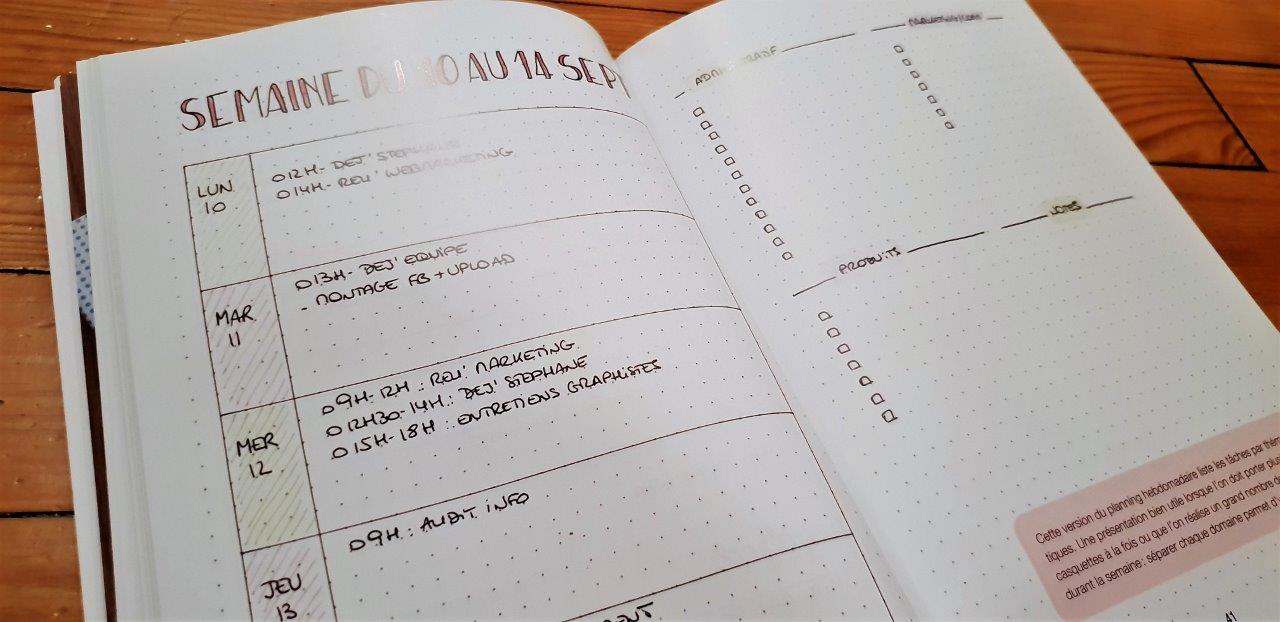 SEMAINE DU 10 AU 14 SEPT
LUN
10
O 12H - DEJ' STEPHANE
O 14H - REU' WEBMARKETING
MAR
11
O 13H - DEJ' EQUIPE
- MONTAGE FB + UPLOAD
MER
12
O 9H-12H : REU' MARKETING
O 12H30-14H : DEJ' STEPHANE
O 15H-18H : ENTRETIENS GRAPHISTES
JEU
13
O 9H : AUDIT INFO
ADMINISTRATIF
MARKETING/COM
PRODUITS
NOTES
Cette version du planning hebdomadaire liste les tâches par thé
tiques. Une présentation bien utile lorsque l'on doit porter plu
casquettes à la fois ou que l'on réalise un grand nombre de
durant la semaine : séparer chaque domaine permet d'
41